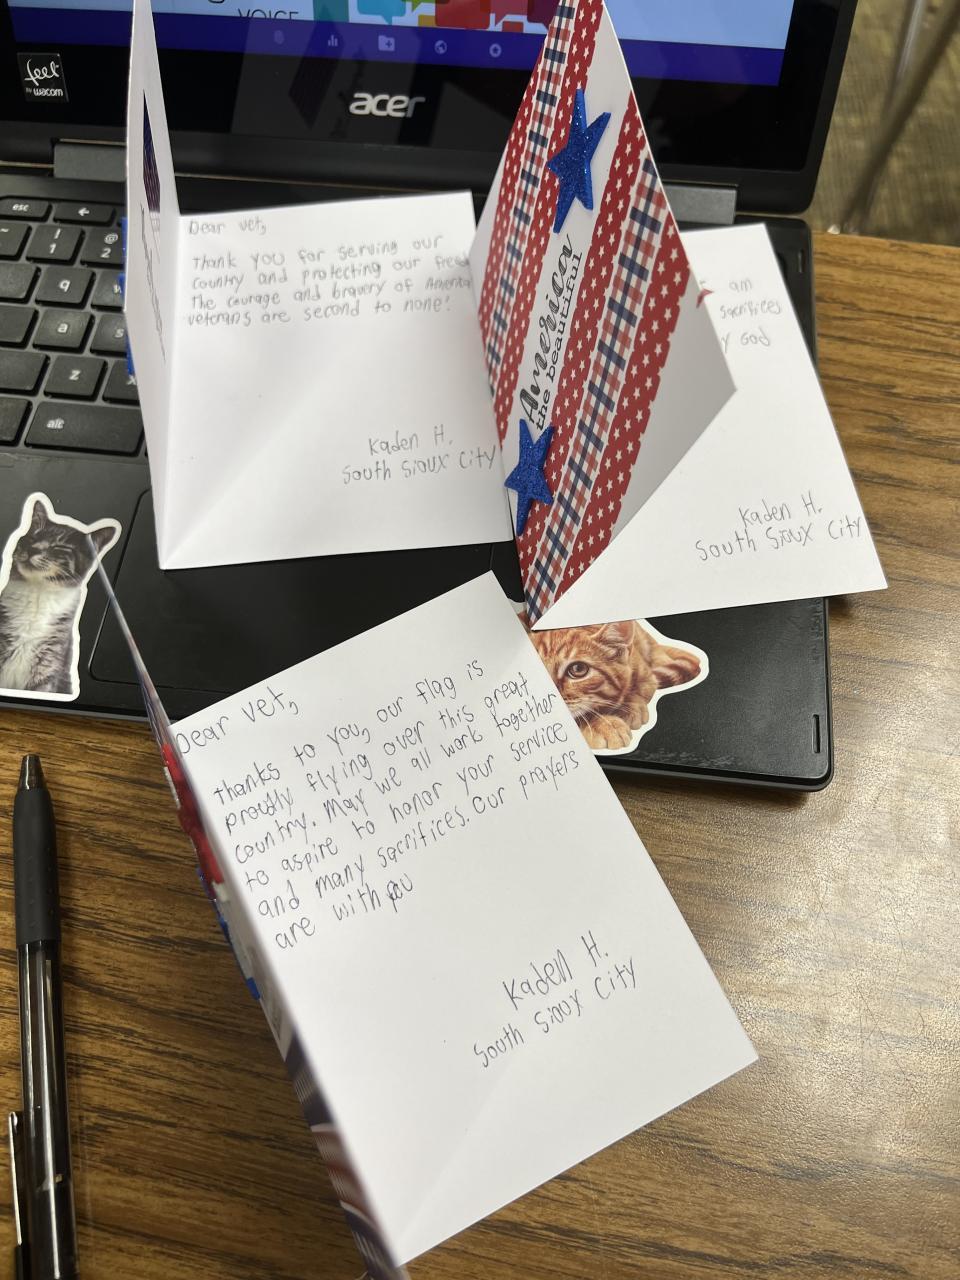 VOICE
feel
by wacom
acer
esc
!
1
@
2
q
a
z
alt
Dear vet,
Thank you for serving our
country and protecting our
The courage and bravery of America
veterans are second to none!
Kaden H.
South Sioux City
America
the beautiful
am
sacrifices
y God
Kaden H.
South Sioux City
Dear vet,
thanks to you, our flag is
proudly flying over this great
country. May we all work together
to aspire to honor your service
and many sacrifices. Our prayers
are with you
Kaden H.
South Sioux City